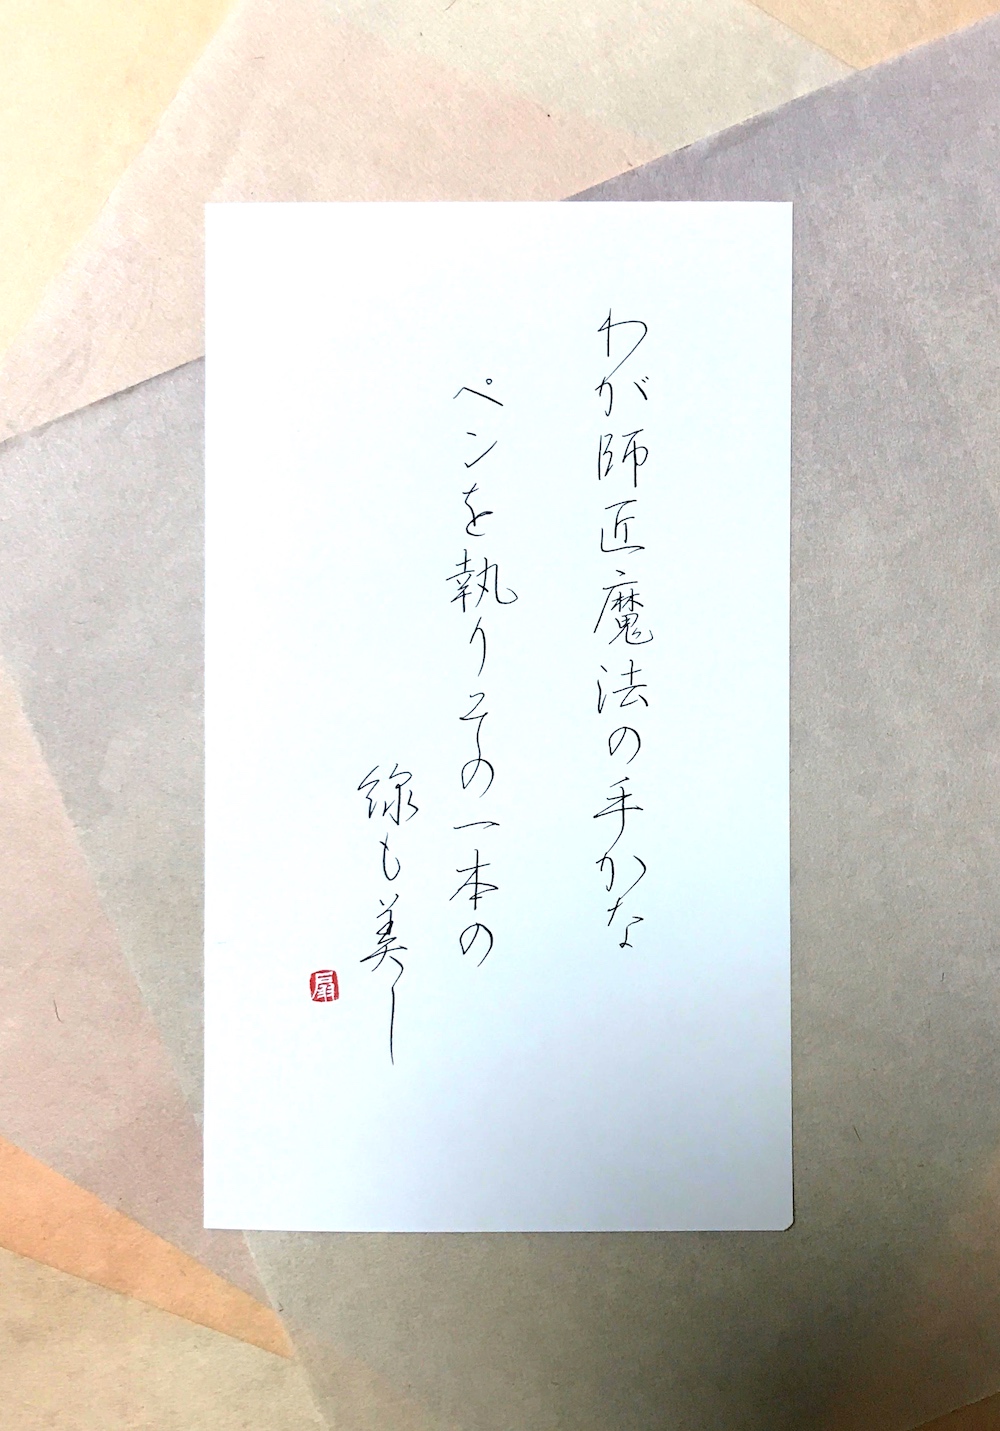 わが師匠魔法の手かな
ペンを執りその一本の
線も美し
扇